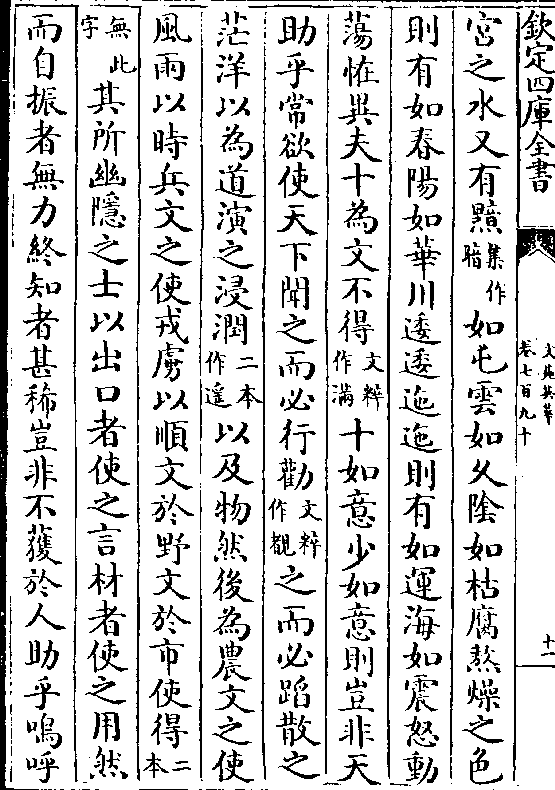 欽定四庫全書
文苑英華
卷七百九十
十一
宮之水又有黯集作暗如屯雲如久陰如枯腐熬燥之色
則有如春陽如華川逶逶迤迤則有如運海如震怒動
蕩怪異夫十為文不得文粹作滿十如意少如意則豈非天
助乎常欲使天下聞之而必行勸文粹作觀之而必蹈散之
茫洋以為道演之浸潤二本作遥以及物然後為農文之使
風雨以時兵文之使戎虜以順文於野文於市使得二本
無此字其所幽隱之士以出口者使之言材者使之用然
而自振者無力終知者甚稀豈非不獲於人助乎嗚呼